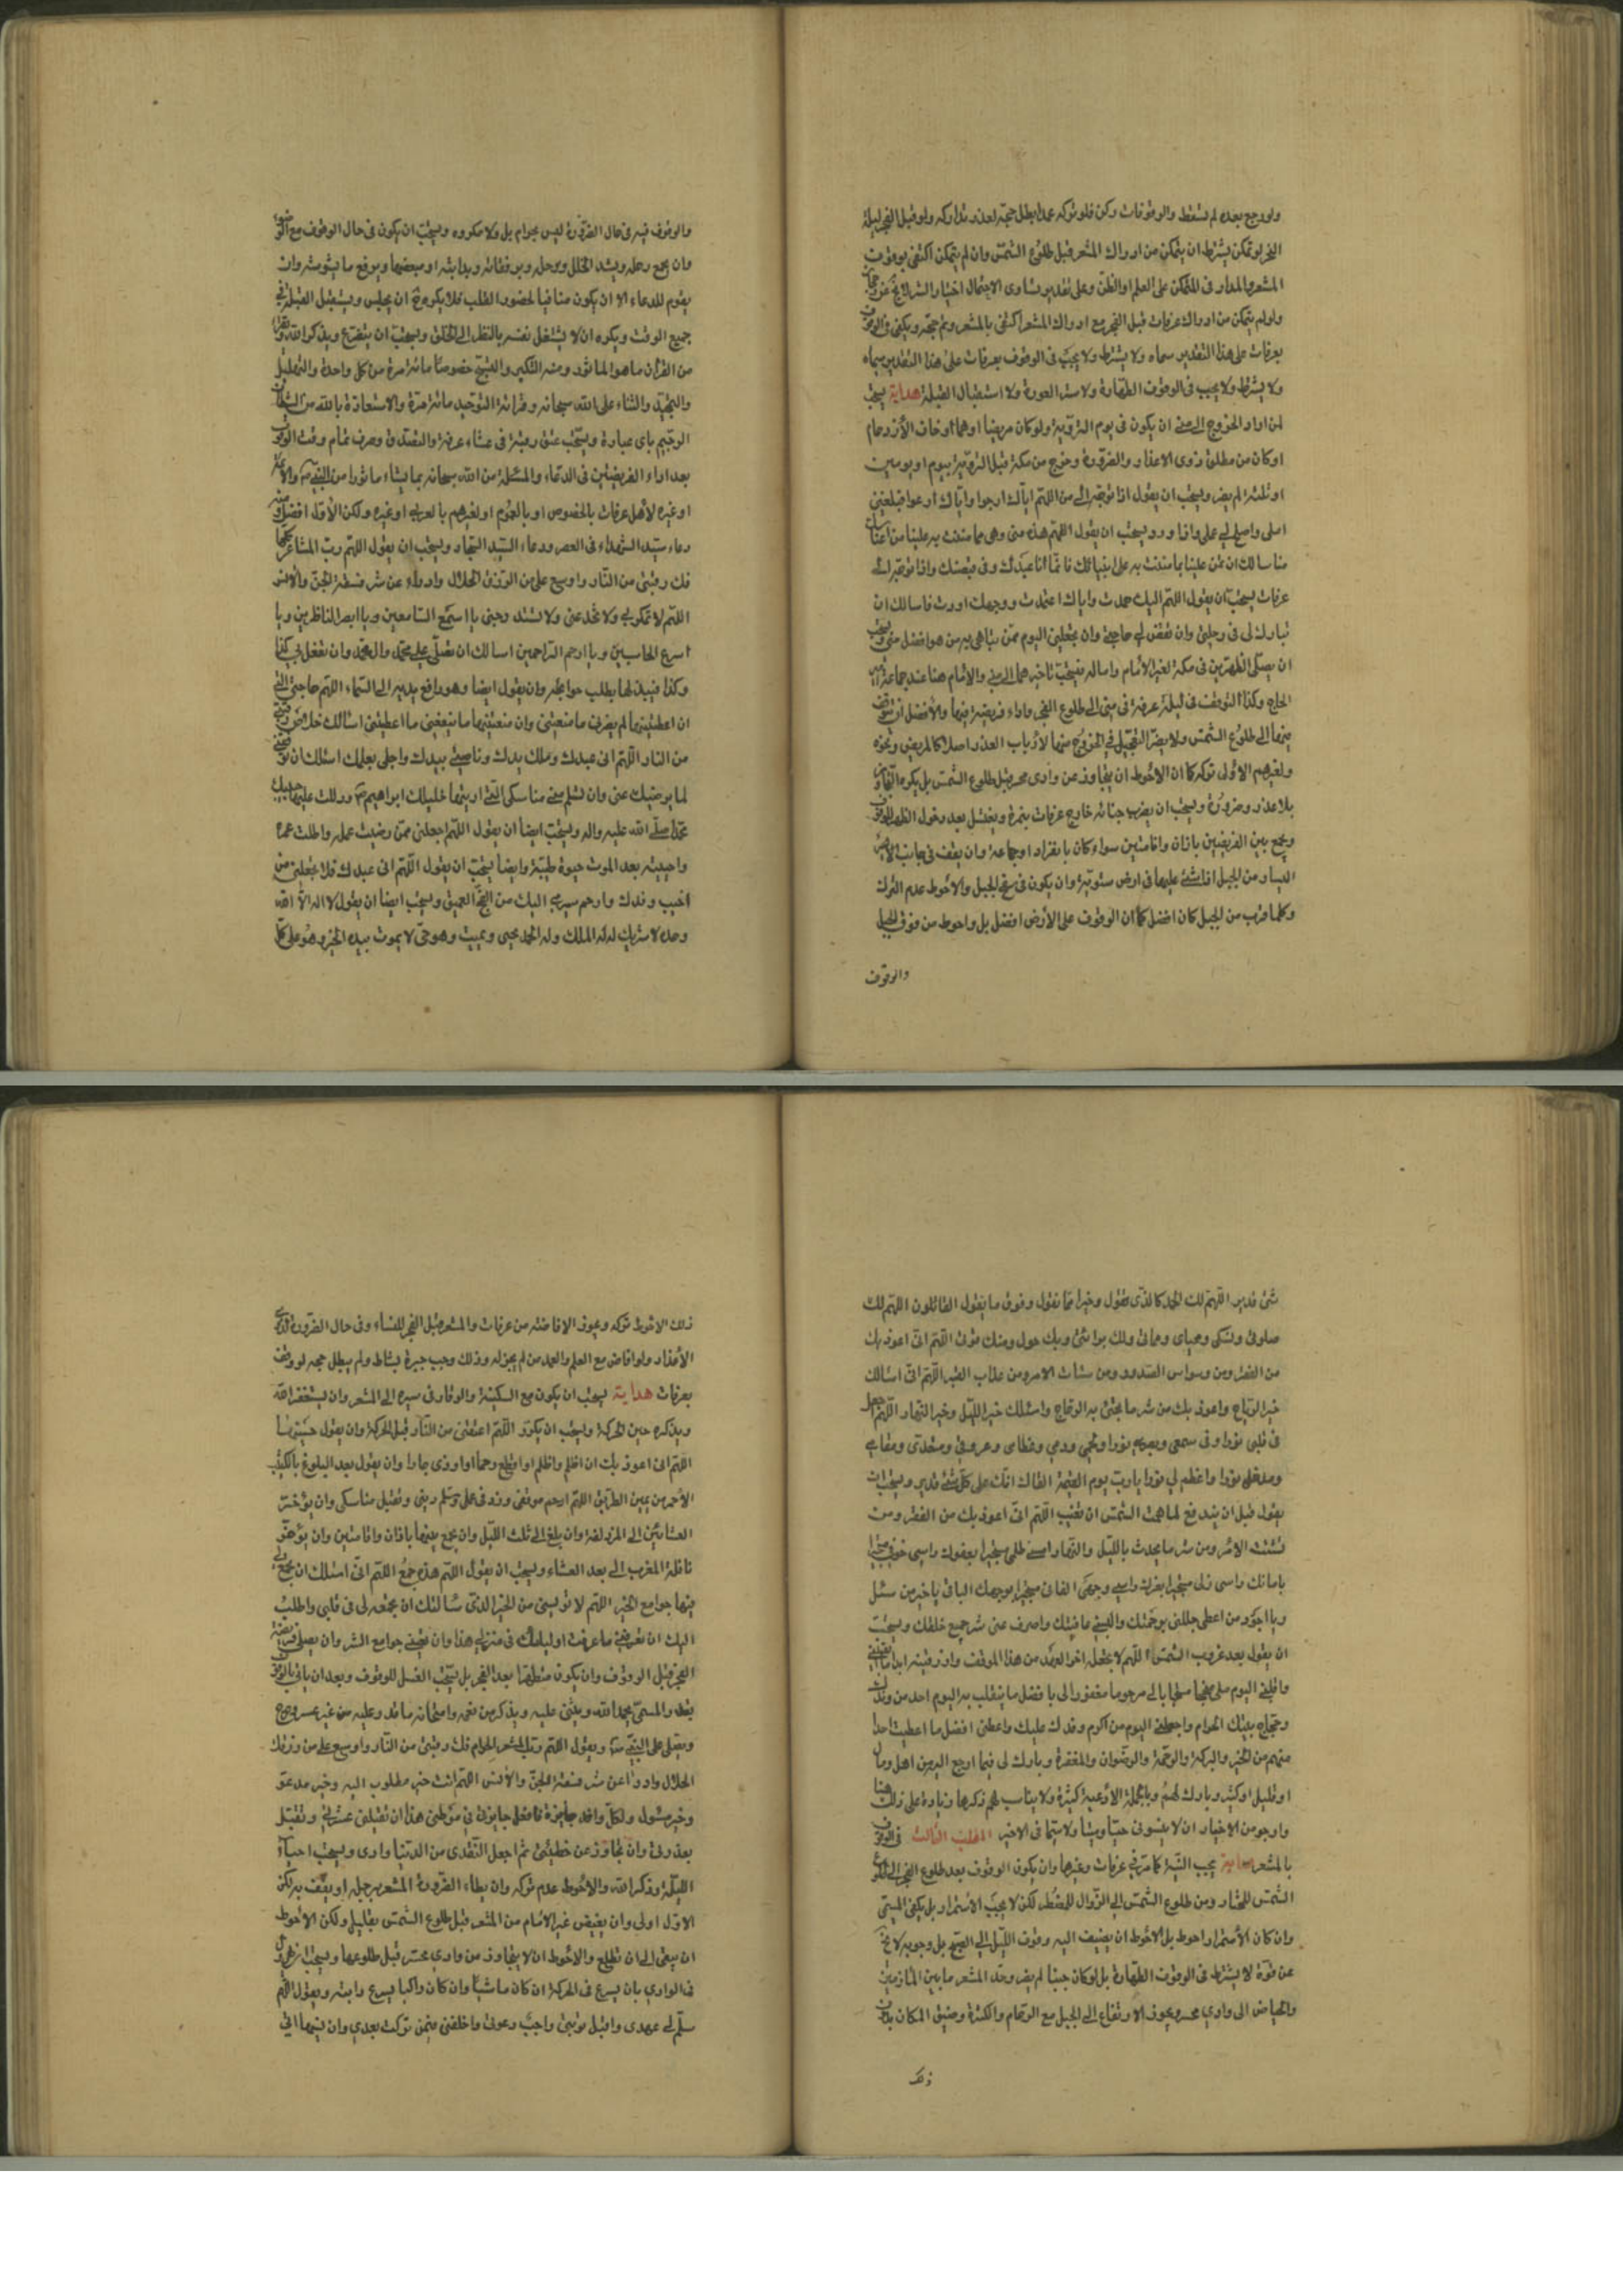 ولو رجع بعده لم يسقط والوقوفات ركن فلو تركه عمدا بطل حجه لعدم تداركه ولو قبل الفجر ليلة
النحر لو تمكن بشرط ان يتمكن من ادراك المشعر قبل طلوع الشمس وان لم يتمكن اكتفى بوقوف
المشعر والمدار في التمكن على العلم او الظن وعلى تقدير تساوى الاحتمال اختيار
ولو لم يتمكن من ادراك عرفات قبل الفجر مع ادراك المشعر اكتفى بالمشعر وتم حجه ويكفى في الوقوف
بعرفات على هذا التقدير مسماه ولا يشترط ولا يجب في الوقوف بعرفات على هذا التقدير مسماه
ولا يشترط ولا يجب في الوقوف الطهارة ولا ستر العورة ولا استقبال القبلة هداية يستحب
لمن اراد الخروج الى منى ان يكون في يوم التروية ولو كان مريضا او هما او خاف الازدحام
او كان من مطلق ذوى الاعذار والضرورة وخرج من مكة قبل التروية بيوم او يومين
او ثلثة لم يضر ويستحب ان يقول اذا توجه الى منى اللهم اياك ارجوا واياك ادعوا فبلغنى
املى واصلح لى عملى واذا ورد يستحب ان يقول اللهم هذه منى وهى مما مننت به علينا من
مناسك اسالك ان تمن علينا بما مننت به على انبيائك فانما انا عبدك وفي قبضتك واذا توجه الى
عرفات يستحب ان يقول اللهم اليك صمدت واياك اعتمدت ووجهك اردت فاسالك ان
تبارك لى فى رحلتى وان تقضى لى حاجتى وان تجعلنى اليوم ممن تباهى به من هو افضل منى ويستحب
ان يصلى الظهرين في مكة لغير الامام واما له فيستحب تاخيرهما الى منى والامام هنا عند جماعة امير
الحاج وكذا التوقف في ليلة عرفة في منى الى طلوع الفجر واداء فريضة فيها والافضل ان يتوقف
فيها الى طلوع الشمس ولا يضر التعجيل في الخروج منها لارباب العذر اصلا كالمريض ونحوه
ولغيرهم الاولى تركه كما ان الاحوط ان لا يتجاوز عن وادى محسر قبل طلوع الشمس بل يكره التجاوز
بلا عذر وضرورة ويستحب ان يضرب خبائه خارج عرفات بنمرة ويغتسل بعد دخول الظهر للوقوف
ويجمع بين الفريضين باذان واقامتين سواء كان بانفراد او جماعة وان يقف في جانب
اليسار من الجبل اذا شئ عليها في ارض مستوية وان يكون في سفح الجبل والاحوط عدم الترك
وكلما قرب من الجبل كان افضل كما ان الوقوف على الارض افضل بل واحوط من فوق الجبل
والوقوف
والوقوف فيه في حال الضرورة ليس بحرام بل ولا مكروه ويستحب ان يكون في حال الوقوف مع الوضوء
وان يجمع رحله ويسد الخلل برحله وبرفقائه وبدابته او ببعضها ويرفع ما يشوشه وان
يقوم للدعاء الا ان يكون منافيا لحضور القلب فلا يكره ح ان يجلس ويستقبل القبلة في
جميع الوقت ويكره ان لا يشتغل نفسه بالنظر الى الخلق ويستحب ان يتضرع ويذكر الله ويقرا
من القران ما هو الماثور ومنه التكبير والتسبيح خصوصا مائة مرة من كل واحدة والتهليل
والتمجيد والثناء على الله سبحانه وقرائة التوحيد مائة مرة والاستعاذة بالله من الشيطان
الرجيم باى عبارة ويستحب عتق رقبة فى عشاء عرفة والتصدق وصرف تمام وقت الوقوف
بعد اداء الفريضتين فى الدعاء والمسئلة من الله سبحانه بما يشاء ماثورا من النبى ص والائمة
او غيره لاهل عرفات بالخصوص او بالعموم او لغيرهم بالعربى او غيره ولكن الاول افضل ومنه
دعاء سيد الشهداء فى العصر ودعاء السيد السجاد ويستحب ان يقول اللهم رب المشاعر كلها
فك رقبتى من النار واوسع على من الرزق الحلال وادرأ عن شر فسقة الجن والانس
اللهم لا تمكر بى ولا تخدعنى ولا تستدرجنى يا اسمع السامعين ويا ابصر الناظرين ويا
اسرع الحاسبين ويا ارحم الراحمين اسالك ان تصلى على محمد وال محمد وان تفعل بى كذا
وكذا فيبدلها بطلب حوائجه وان يقول ايضا وهو رافع يديه الى السماء اللهم حاجتى التى
ان اعطيتنيها لم يضرنى ما منعتنى وان منعتنيها ما ينفعنى ما اعطيتنى اسالك خلاص رقبتى
من النار اللهم انى عبدك وملك يدك وناصيتى بيدك واجلى بعلمك اسئلك ان توفقنى
لما يرضيك عنى وان تسلم منى مناسكى التى اريتها خليلك ابراهيم ص ودللت عليها حبيبك
محمدا صلى الله عليه واله ويستحب ايضا ان يقول اللهم اجعلنى ممن رضيت عمله واطلت عمره
واحييته بعد الموت حيوة طيبة وايضا يستحب ان يقول اللهم انى عبدك فلا تجعلنى من
اخيب وفدك وارحم سيرى اليك من الفج العميق ويستحب ايضا ان يقول لا اله الا الله
وحده لا شريك له له الملك وله الحمد يحيى ويميت وهو حى لا يموت بيده الخير وهو على كل
شئ قدير اللهم لك الحمد كالذى نقول وخيرا مما نقول وفوق ما يقول القائلون اللهم لك
صلوتى ونسكى ومحياى ومماتى ولك براثى وبك حولى ومنك قوتى اللهم انى اعوذ بك
من الفقر ومن وسواس الصدور ومن شتات الامر ومن عذاب القبر اللهم انى اسئالك
خير الرياح واعوذ بك من شر ما يجئ به الرياح واسئلك خير الليل وخير النهار اللهم اجعل
فى قلبى نورا وفى سمعى وبصرى نورا ولحمى ودمى وعظامى وعروقى ومقعدى ومقامى
ومدخلى نورا واعظم لى نورا يا رب يوم القيمة القاك انك على كل شئ قدير ويستحب ان
يقول قبل ان يندفع لما همت الشمس ان تغيب اللهم انى اعوذ بك من الفقر ومن
تشتت الامر ومن شر ما يحدث بالليل والنهار امسى ظلمى مستجيرا بعفوك وامسى خوفى مستجيرا
بامانك وامسى ذلى مستجيرا بعزك وامسى وجهى الفانى مستجيرا بوجهك الباقى يا خير من سئل
ويا اجود من اعطى جللنى برحمتك والبسنى عافيتك واصرف عنى شر جميع خلقك ويستحب
ان يقول بعد غروب الشمس اللهم لا تجعله اخر العهد من هذا الموقف وارزقنيه ابدا ما ابقيتنى
واقلبنى اليوم مفلحا منجحا مستجابا لى مرحوما مغفورا لى بافضل ما ينقلب به اليوم احد من وفدك
وحجاج بيتك الحرام واجعلنى اليوم من اكرم وفدك عليك واعطنى افضل ما اعطيت احدا
منهم من الخير والبركة والرحمة والرضوان والمغفرة وبارك لى فيما ارجع اليه من اهل ومال
او قليل او كثير وبارك لهم وبالجملة الادعية كثيرة ولا يناسب لهم ذكرها وزيادة على ذلك هنا
وارجو من الاخيار ان لا ينسونى حيا وميتا ولا سيما فى الاخير المطلب الثالث فى الوقوف
بالمشعر هداية يجب النية كما مر فى عرفات وغيرها وان يكون الوقوف بعد طلوع الفجر الى طلوع
الشمس للمختار ومن طلوع الشمس الى الزوال للمضطر لكن لا يجب الاستمرار بل يكفى المسمى
وان كان الاستمرار احوط بل الاحوط ان يضيف اليه وقوف الليل الى الصبح بل وجوبه لا يخ
عن قوة لا يشترط فى الوقوف الطهارة بل لو كان جنبا لم يضر وحد المشعر ما بين المازمين
والحياض الى وادى محسر ويجوز الارتفاع الى الجبل مع الزحام والكثرة وضيق المكان بدون
ذلك
ذلك الاحوط تركه ويجوز الافاضة من عرفات والمشعر قبل الفجر للنساء وفى حال الضرورة لذوى
الاعذار ولو افاض مع العلم والعمد من لم يجز له وذلك وجب جبره بشاة ولم يبطل حجه لو وقف
بعرفات هداية يستحب ان يكون مع السكينة والوقار فى سيره الى المشعر وان يستغفر الله
ويذكره حين الحركة ويستحب ان يكرر اللهم اعتقنى من النار قبل الحركة وان يقول حين
اللهم انى اعوذ بك ان اظلم واظلم او اقطع رحما او اوذى جارا وان يقول بعد البلوغ بالكثيب
الاحمر من يمين الطريق اللهم ارحم موقفى وزد فى عملى وسلم دينى وتقبل مناسكى وان يؤخر
العشائين الى المزدلفة وان بلغ الى ثلث الليل وان يجمع بينهما باذان واقامتين وان يؤخر
نافلة المغرب الى بعد العشاء ويستحب ان يقول اللهم هذه جمع اللهم انى اسئلك ان تجمع لى
فيها جوامع الخير اللهم لا تؤيسنى من الخير الذى سئالتك ان تجمعه لى فى قلبى واطلب
اليك ان تعرفنى ما عرفت اوليائك فى منزلى هذا وان تقينى جوامع الشر وان يصلى فريضة
الفجر قبل الوقوف وان يكون متطهرا بعد الفجر بل يستحب الغسل للوقوف وبعد ان ياتى بالوقوف
بقدر المسمى يحمد الله ويثنى عليه ويذكر من نعمه وامتنانه ما قدر عليه من غير عسر وحرج
ويصلى على النبى ص ويقول اللهم رب المشعر الحرام فك رقبتى من النار واوسع على من رزقك
الحلال وادرأ عن شر فسقة الجن والانس اللهم انت خير مطلوب اليه وخير مدعو
وخير مسئول ولكل وافد جائزة فاجعل جايزتى فى موطنى هذا ان تقيلنى عثرتى وتقبل
معذرتى وان تجاوز عن خطيئتى ثم اجعل التقوى من الدنيا زادى ويستحب احياء
الليلة وذكر الله والاحوط عدم تركه وان يطاء الصرورة المشعر برجله او يقف به لكن
الاول اولى وان يفيض غير الامام من المشعر قبل طلوع الشمس بقليل ولكن الاحوط
ان يبقى الى ان تطلع والاحوط ان لا يتجاوز من وادى محسر قبل طلوعها ويستحب ان يهرول
فى الوادى بان يسرع فى الحركة ان كان ماشيا وان كان راكبا يسرع دابته ويقول اللهم
سلم لى عهدى واقبل توبتى واجب دعوتى واخلفنى فيمن تركت بعدى وان فيهما